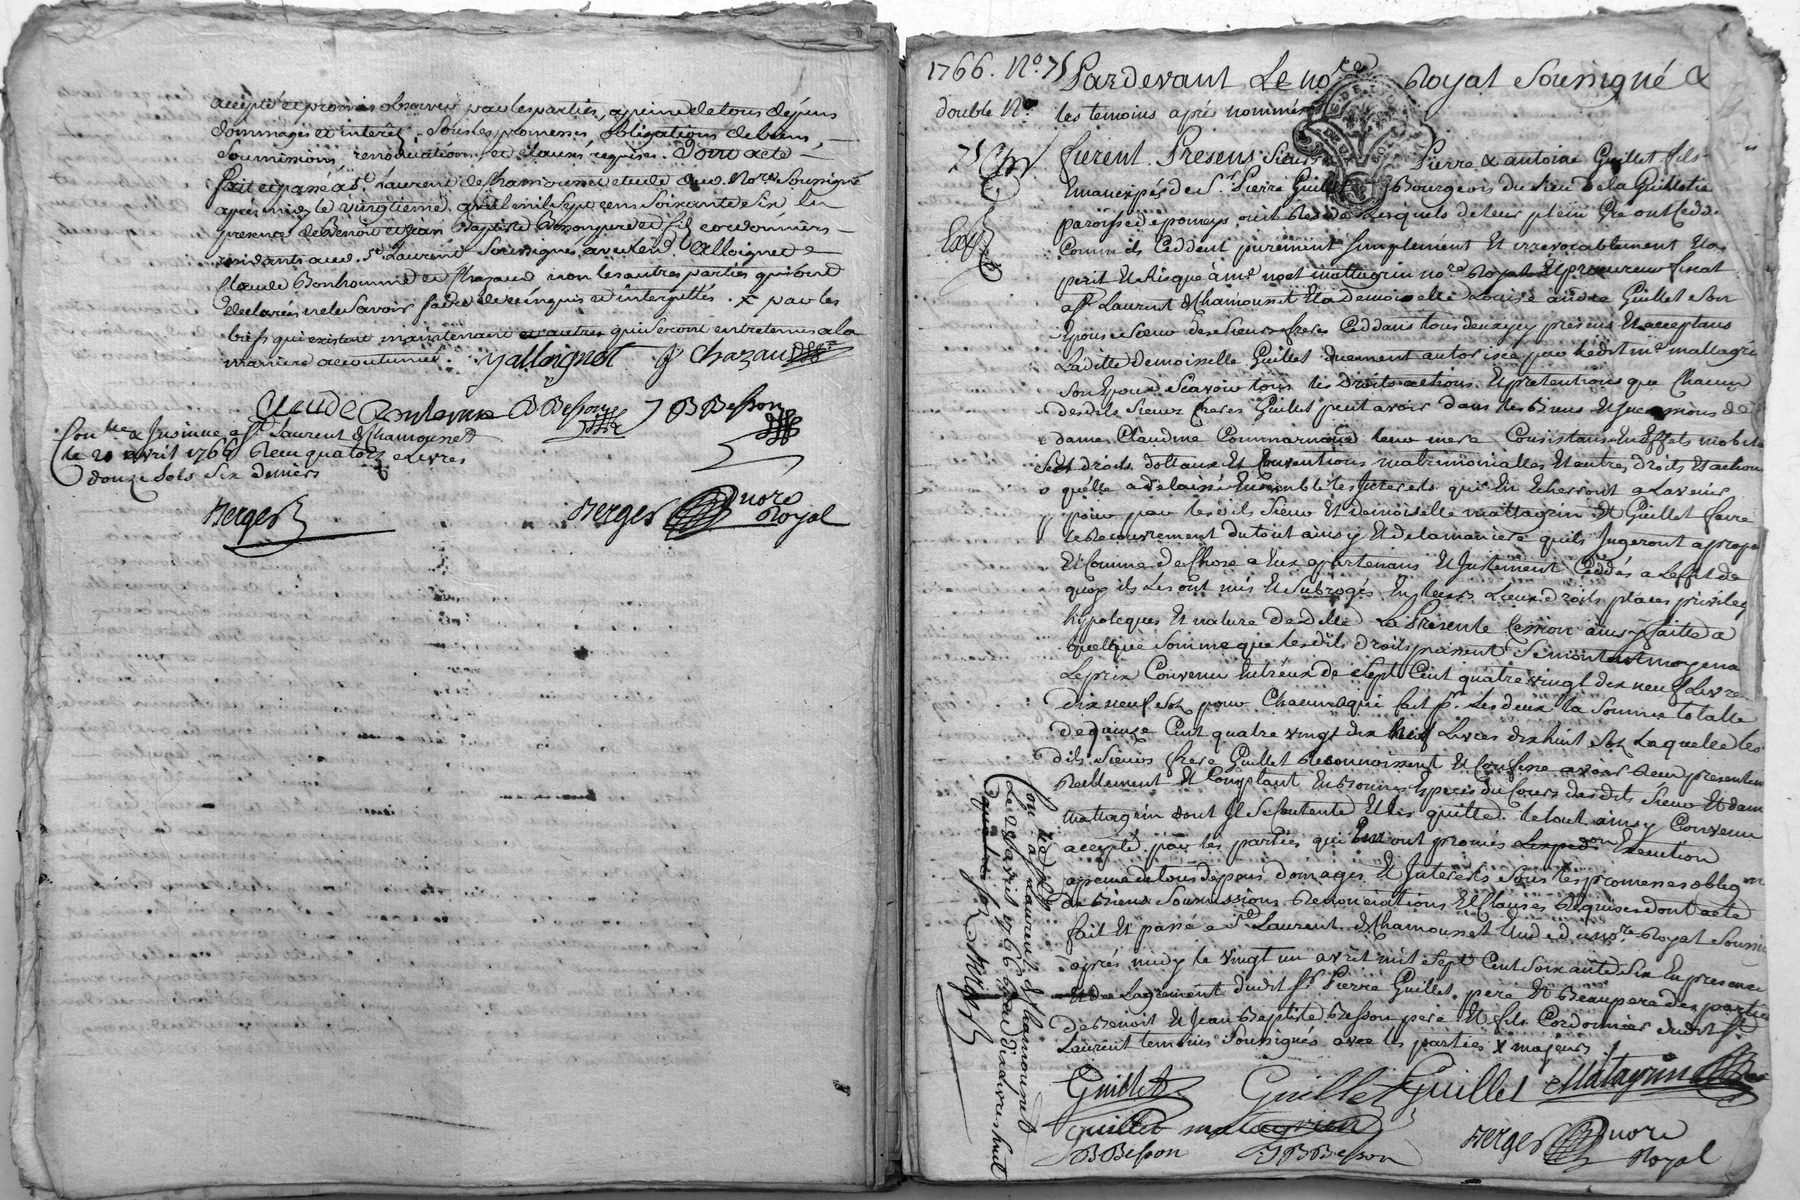 accepté et promis observer par les parties, a peine de tous dépens
dommages et interêt, sous les promesses, obligations de biens,
soumissions, renonciations et clauses requises. Dont acte
fait et passé a St. Laurent de Chamousset etude dud. No.re soussigné
apres midy le vingtieme avril mil sept cens soixante six en
presence de Benoit et Jean Baptiste Besson pere et fil cordonniers
residants aud. St Laurent soussignés avec led. Alloignet
Claude Bonhomme et Chazaud non les autres parties qui ont
declarées ne le savoir faire de ce enquis et interpellés. x par les
biefs qui existent maintenant et autres qui seront entretenus a la
maniere accoutumée. yalloignet Chazaud
Claude B Besson J B Besson
Con.lle & Insinué a St. Laurent de Chamousset
le 20 avril 1766 Reçu quatorze Livres
douze sols six deniers
Berger Berger nore
Royal
1766. No. 75 Pardevant Le no.re Royal soussigné &
double No. les temoins après nommés
75 furent Presens sieurs Pierre & antoine Guillet fils
Emancipés de Sr. Pierre Guillet Bourgeois du lieu de la Guilletie
paroisse de pomeys ou ils Lesquels de leur plein Gré ont Ceddé
Comm' ils Ceddent purement simplement Et irrevocablement Et a
peril Et Risque à me. noel mattagrin no.re Royal Et procureur fiscal
a St. Laurent de Chamousset Et a Demoiselle Louise andre Guillet son
Epouse soeur des sieurs freres Ceddans tous deux icy presens Et acceptans
Laditte Demoiselle Guillet duement autorisée par Ledit me. mattagrin
son Epoux Scavoir tous Les Droits actions Et pretentions que Chacun
desdits sieurs freres Guillet peut avoir dans les Biens Et successions de
dame Claudine Commarmond leur mere Consistans En Effets mobiliers
Et droits dottaux Et Conventions matrimonialles Et autres droits Et actions
quelle a delaissé Ensemble les Interets qui En Echerront a Lavenir
pour par lesdits sieur Et demoiselle mattagrin Et Guillet faire
le Recouvrement du tout ainsy Et de la maniere quils Jugeront a propos
Et Comme de Chose a Eux apartenans Et Justement Ceddés a Leffet de
quoy ils Les ont mis Et subrogés En leurs Lieux droits places privileg
hypoteques Et nature de dette La Presente Cession ainsy faitte a
quelque somme que lesdits droits puissent se monter et moyena
Le prix Convenu Entreux de sept Cent quatre vingt dix neuf Livres
dix neuf sols pour Chacun a qui fait pr. Les deux la somme totalle
de quinze Cent quatre vingt dix neuf Livres dix huit sols Laquelle les
dits sieurs frere Guillet Reconnoissent Et Confesse avoir Reçu presentem
Reellement Et Comptant En Bonnes Especes du Cours desdits sieur Et dame
mattagrin dont Il se Contente Et Les quitte. le tout ainsy Convenu
accepté par les parties qui En ont promis Execution
a peine de tous depens domages Et Interets sous les promesses oblig.on
de Biens soumissions Renonciations Et Clauses Requises dont acte
fait Et passé a St. Laurent de Chamousset Etude du no.re Royal soussig
après midy le vingt un avril mil sept Cent soixante six En presence
Et de Lagrement dudit Sr. Pierre Guillet pere Et Beaupere des parties
de Benoit Et Jean Baptiste Besson pere Et fils Cordonnier dudit St.
Laurent temoins soussignés avec les parties x majeurs
Guillet Guillet Guillet Matagrin
guillet matagrin
B Besson J B Besson Berger nore
Royal
Con.lle & Insinué
a St Laurent de Chamousset
Le 21 avril 1766 Reçu dix Livres huit